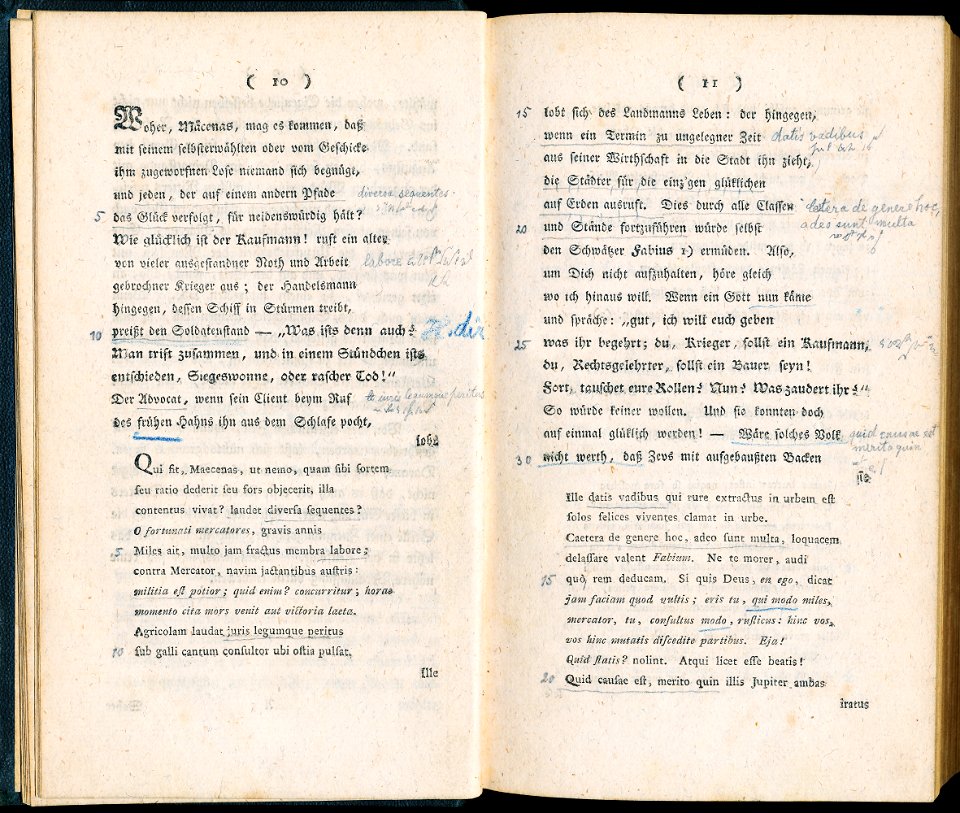 ( 10 )
Woher, Mäcenas, mag es kommen, daß
mit seinem selbsterwählten oder vom Geschicke
ihm zugeworfnen Lose niemand sich begnügt,
und jeden, der auf einem andern Pfade diversa sequentes
5 das Glück verfolgt, für neidenswürdig hält?
Wie glücklich ist der Kaufmann! ruft ein alter
von vieler ausgestandner Noth und Arbeit labore
gebrochner Krieger aus; der Handelsmann
hingegen, dessen Schiff in Stürmen treibt,
10 preißt den Soldatenstand — „Was ists denn auch?
Man trift zusammen, und in einem Stündchen ists
entschieden, Siegeswonne, oder rascher Tod!“
Der Advocat, wenn sein Client beym Ruf iuris legumque peritus
des frühen Hahns ihn aus dem Schlafe pocht,
lobt
Qui fit, Maecenas, ut nemo, quam sibi sortem
seu ratio dederit seu fors objecerit, illa
contentus vivat? laudet diversa sequentes?
O fortunati mercatores, gravis annis
5 Miles ait, multo jam fractus membra labore;
contra Mercator, navim jactantibus austris:
militia est potior; quid enim? concurritur; horae
momento cita mors venit aut victoria laeta.
Agricolam laudat juris legumque peritus
10 sub galli cantum consultor ubi ostia pulsat.
Ille
( 11 )
15 lobt sich des Landmanns Leben: der hingegen,
wenn ein Termin zu ungelegner Zeit datis vadibus
aus seiner Wirthschaft in die Stadt ihn zieht,
die Städter für die einz'gen glüklichen
auf Erden ausruft. Dies durch alle Classen Cetera de genere hoc,
20 und Stände fortzuführen würde selbst adeo sunt multa
den Schwätzer Fabius 1) ermüden. Also,
um Dich nicht aufzuhalten, höre gleich
wo ich hinaus will. Wenn ein Gott nun käme
und spräche: „gut, ich will euch geben
25 was ihr begehrt; du, Krieger, sollst ein Kaufmann,
du, Rechtsgelehrter, sollst ein Bauer seyn!
Fort, tauschet eure Rollen! Nun? Was zaudert ihr?“
So würde keiner wollen. Und sie konnten doch
auf einmal glüklich werden! — Wäre solches Volk quid causae est
30 nicht werth, daß Zevs mit aufgebaußten Backen merito quin
Ille datis vadibus qui rure extractus in urbem est
solos felices viventes clamat in urbe.
Caetera de genere hoc, adeo sunt multa, loquacem
delassare valent Fabium. Ne te morer, audi
15 quò rem deducam. Si quis Deus, en ego, dicat
jam faciam quod vultis; eris tu, qui modo miles,
mercator, tu, consultus modo, rusticus: hinc vos,
vos hinc mutatis discedite partibus. Eja!
Quid statis? nolint. Atqui licet esse beatis!
20 Quid causae est, merito quin illis Jupiter ambas
iratus